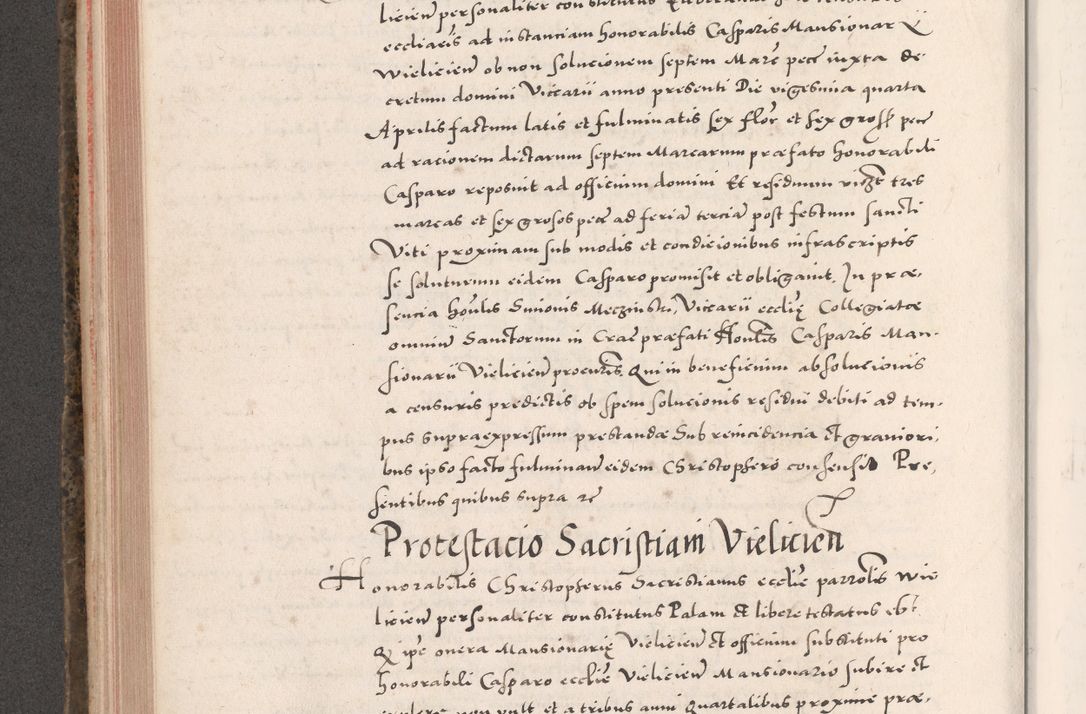 licień personaliter constitutus
eccliaris ad instanciam honorabilis Casparis Mansionar
Wielicień ob non solucionem septem Marc̄ pecē iuxta de
cretum domini Vicarii anno presenti Die vigesima quarta
Aprilis factum latis et fulminatis sex flor̄ et sex gross pecē
ad racionem dictarum septem Marcarum præfato honorabili
Casparo reposuit ad officium domini Et residuum vicꝫt tres
marcas et sex grosos pecē ad feriā terciā post festum sancti
Viti proximam sub modis et condicionibus infrascriptis
se soluturum eidem Casparo promisit et obligauit. In præ,
sencia hōulis Simonis Meczinski, Vicarii ecclię Collegiatæ
omniū Sanctorum in Crac̄ præfati Honlis Casparis Man-
sionarii Vielicień procuris, Qui in beneficium absolucionis
a censuris predictis ob spem solucionis residui debiti ad tem-
pus supraexpressum prestandæ Sub reincidencia et graviori,
bus ipso facto fulminań eidem Christophero consensit Pre,
sentibus quibus supra rē
Protestacio Sacristiani Vielicień
Honorabilis Christopherus Sacristianus ecclię parrolis Wie
licień personaliter constitutus Palam et libere testatus est
Q ipē onera Mansionarię Vielicień et officium substituti pro
honorabili Casparo ecclię Vielicień Mansionario subire et
implere non vult et a tribus anni quartalibus proxime præ,